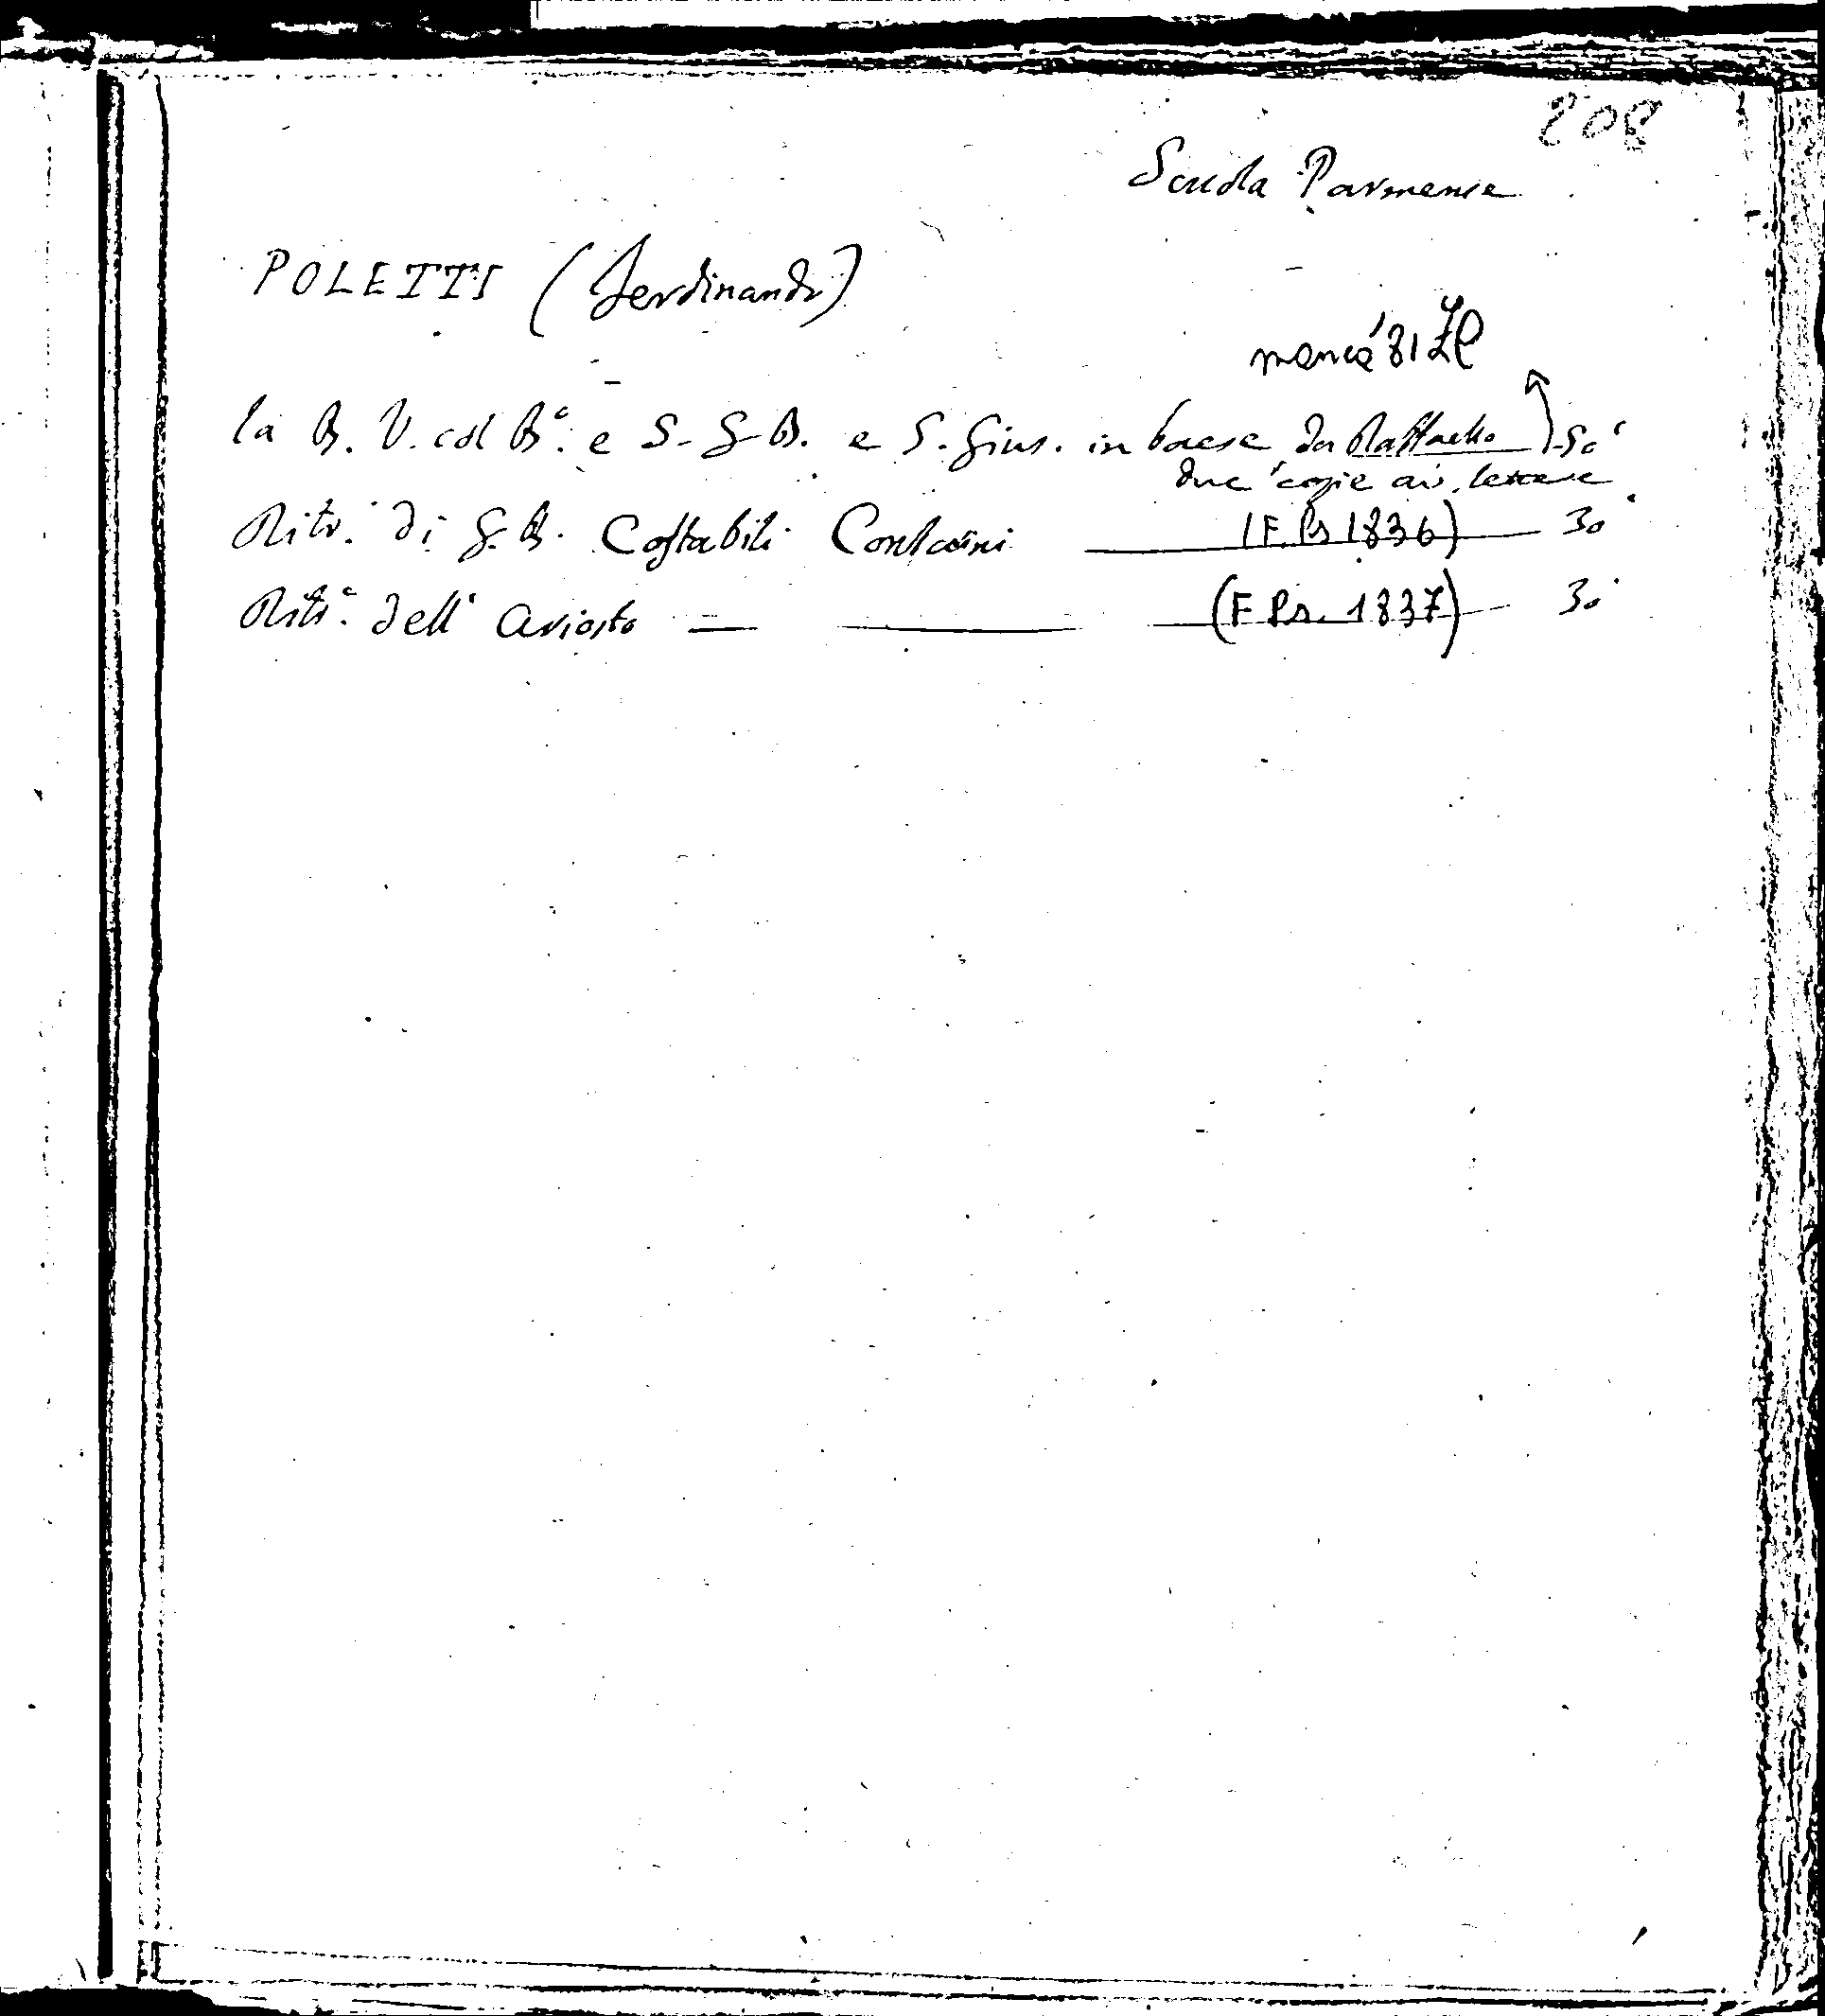 208
Scuola Parmense
POLETTI (Ferdinando)
manca '81
la B. V. col B.º e S. G. B. e S. Gius. in paese da Raffaello 50
due copie av. lettere
Ritr. di G. B. Costabili Containi (F. Ps 1836) 30
Ritr.º dell' Ariosto (F Ps. 1837) 30